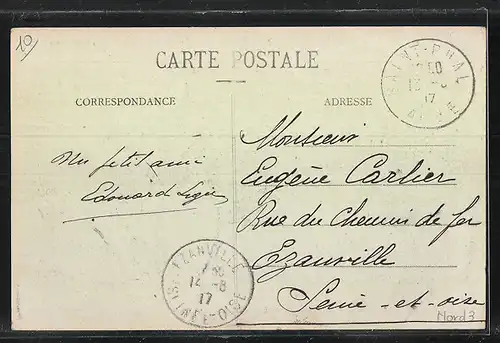 10
CARTE POSTALE
SAINT-PHAL
13 -8
17
CORRESPONDANCE
ADRESSE
Monsieur
Eugène Carlier
Rue du Chemin de fer
Ezanville
Seine-et-oise
Un petit ami
Edouard
EZANVILLE
14 -8
17
SEINE-&-OISE
Nord 3